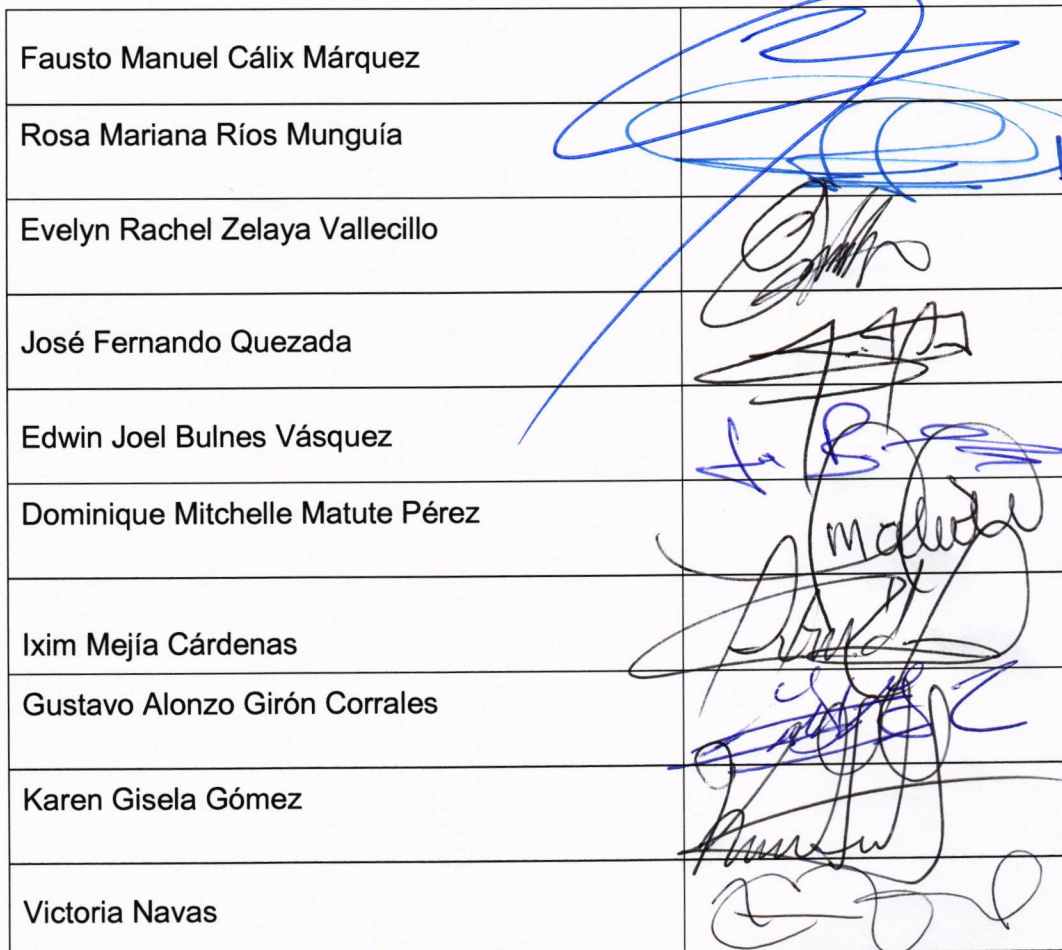 Fausto Manuel Cálix Márquez
Rosa Mariana Ríos Munguía
Evelyn Rachel Zelaya Vallecillo
José Fernando Quezada
Edwin Joel Bulnes Vásquez
Dominique Mitchelle Matute Pérez
Ixim Mejía Cárdenas
Gustavo Alonzo Girón Corrales
Karen Gisela Gómez
Victoria Navas